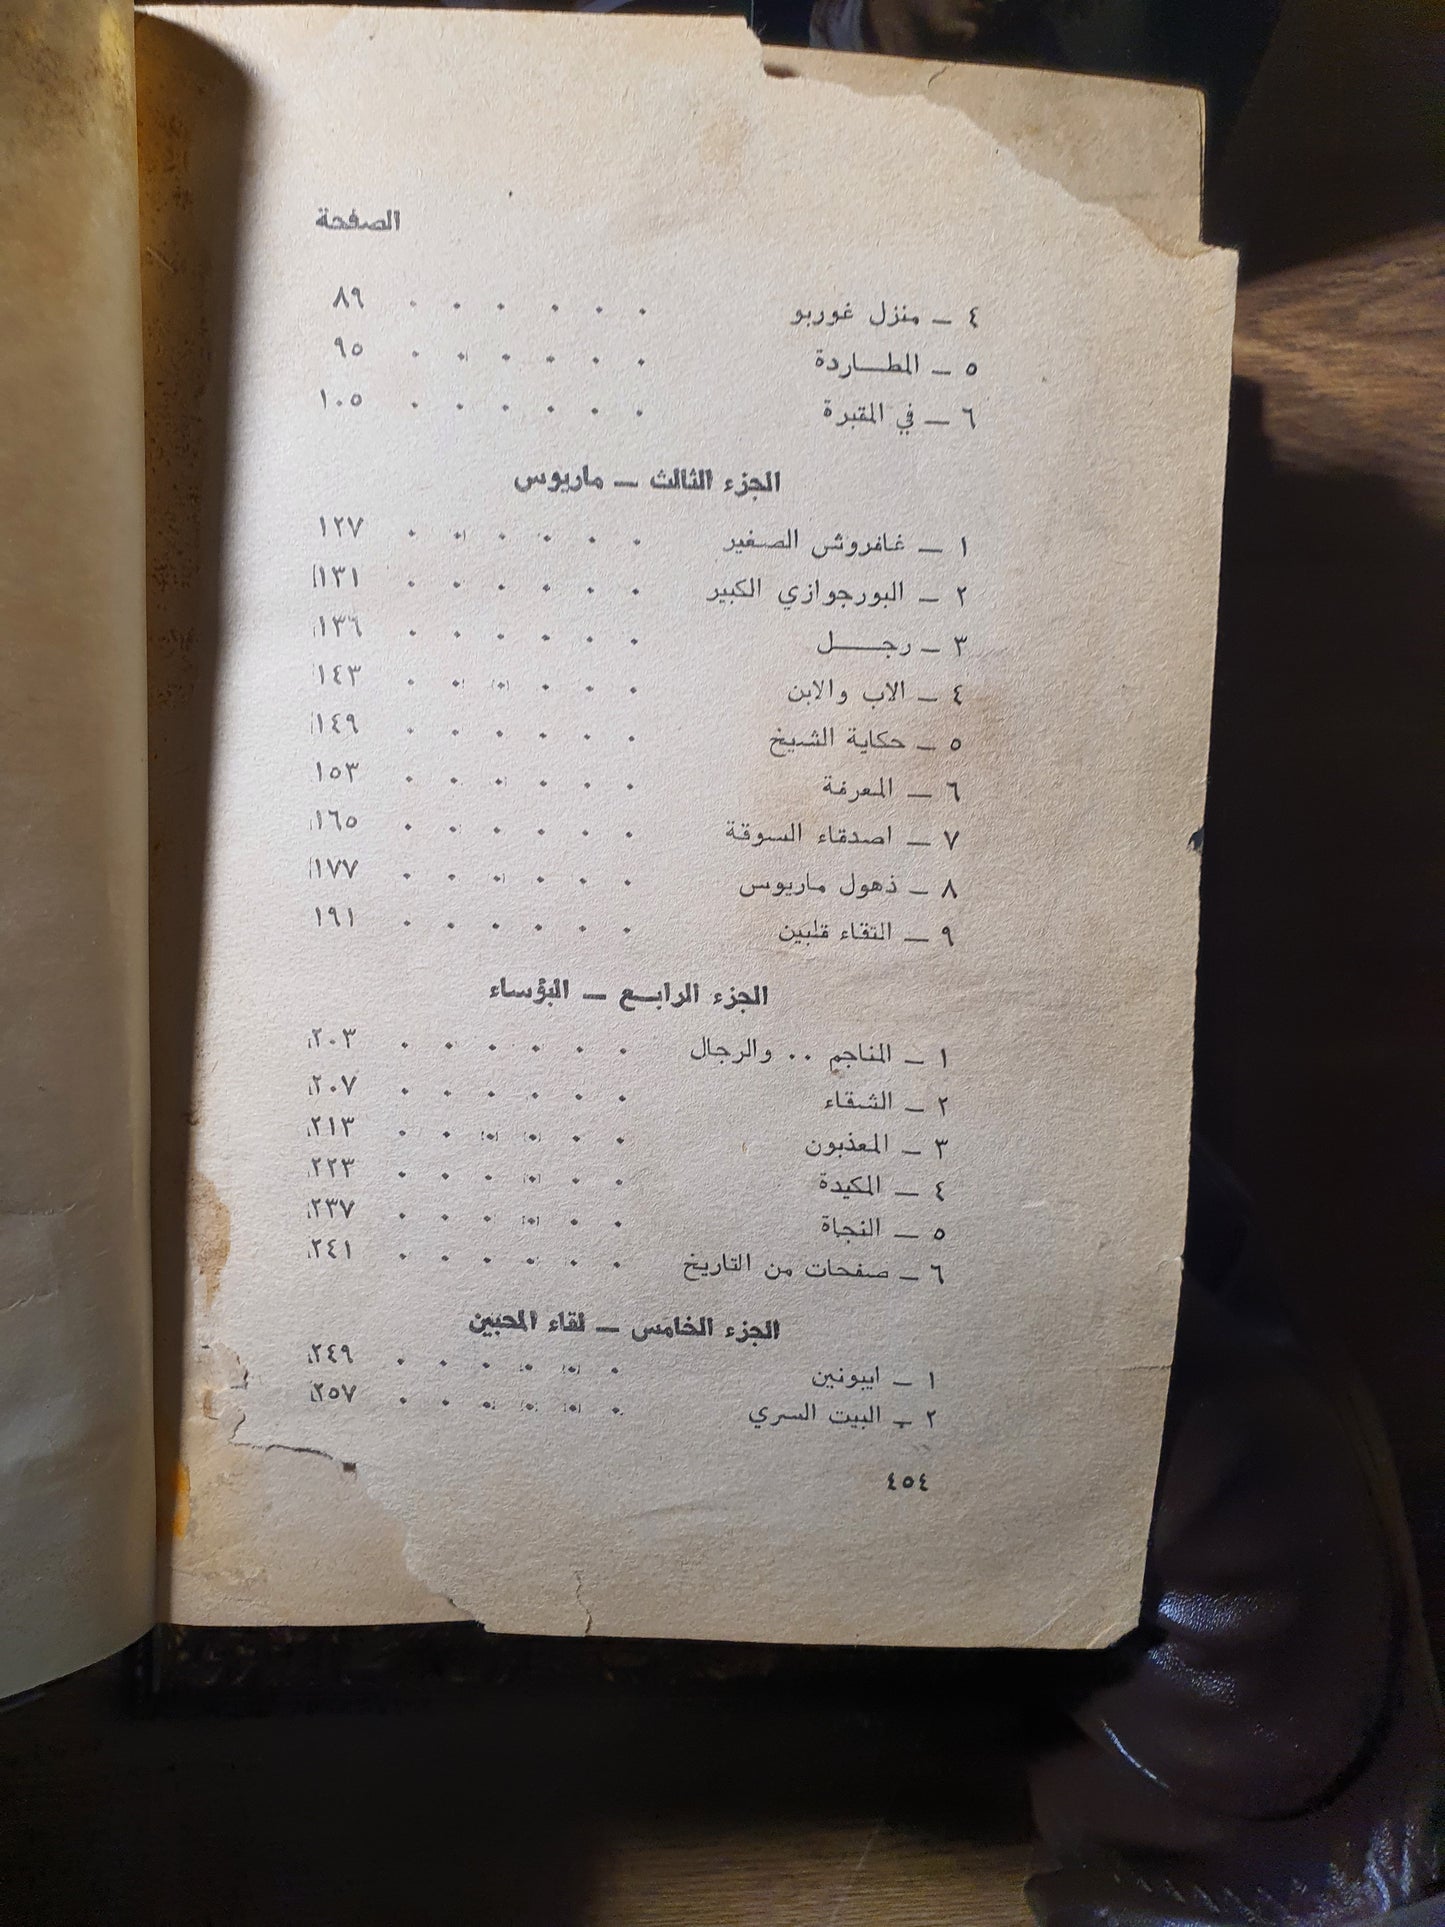 الصفحة
٤ — منزل غوربو . . . . . . ٨٩
٥ — المطـــاردة . . . . . . ٩٥
٦ — في المقبرة . . . . . . ١٠٥
الجزء الثالث — ماريوس
١ — غافروش الصغير . . . . . . ١٢٧
٢ — البورجوازي الكبير . . . . . . ١٣١
٣ — رجـــــل . . . . . . ١٣٦
٤ — الاب والابن . . . . . . ١٤٣
٥ — حكاية الشيخ . . . . . . ١٤٩
٦ — المعرفة . . . . . . ١٥٣
٧ — اصدقاء السوقة . . . . . . ١٦٥
٨ — ذهول ماريوس . . . . . . ١٧٧
٩ — التقاء قلبين . . . . . . ١٩١
الجزء الرابـــع — البؤساء
١ — المناجم . . والرجال . . . . . . ٢٠٣
٢ — الشقاء . . . . . . ٢٠٧
٣ — المعذبون . . . . . . ٢١٣
٤ — المكيدة . . . . . . ٢٢٣
٥ — النجاة . . . . . . ٢٣٧
٦ — صفحات من التاريخ . . . . . . ٢٤١
الجزء الخامس — لقاء المحبين
١ — ايبونين . . . . . . ٢٤٩
٢ — البيت السري . . . . . . ٢٥٧
٤٥٤